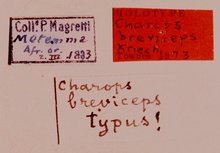 Coll. P. Magretti
Metemma
Afr. or.
2. III 1883
HOLOTYPE
Charops
breviceps
Kriech.
LONDON 1973
Charops
breviceps
typus!